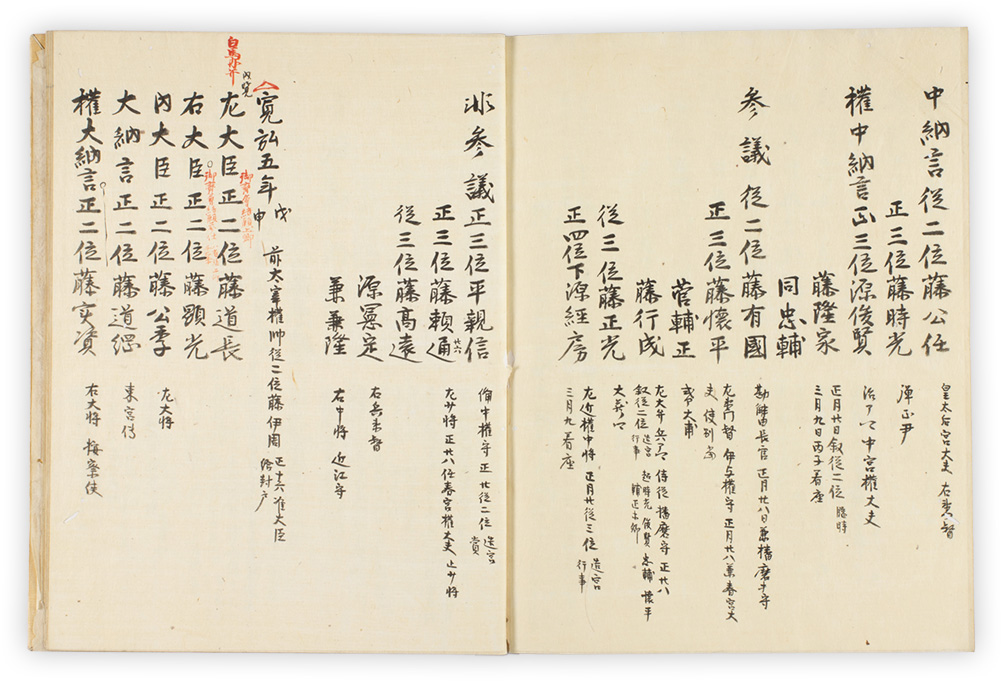 中納言 従二位藤公任 皇太后宮大夫 右衛門督
正三位藤時光 弾正尹
権中納言正三位源俊賢 治了 中宮権大夫
藤隆家 正月廿日叙従二位 臨時
同忠輔 三月九日丙子着座
参議 従二位藤有国 勘解由長官 正月廿八日兼播磨守
正三位藤懐平 左衛門督 伊与権守 正月廿八兼春宮大夫 使別当
菅輔正 式大甫
藤行成 左大弁 侍従 播磨守 正廿八
叙従二位 造宮行事 超時光 俊賢 忠輔 懐平 輔正等卿
従三位藤正光 大蔵
正四位下源経房 左近権中将 正月廿従三位 造宮行事
三月九着座
非参議 正三位平親信 備中権守 正廿従二位 造宮賞
正三位藤頼通 廿六 左少将 正廿八任春宮権大夫 止少将
従三位藤高遠
源憲定 右兵衛督
兼隆 右中将 近江守
寛弘五年 戊申
前太宰権帥従二位藤伊周 正十六准大臣 給封戸
左大臣正二位藤道長 内覧
白馬
右大臣正二位藤顕光
内大臣正二位藤公季 左大将
大納言正二位藤道綱 東宮傅
権大納言正二位藤実資 右大将 按察使